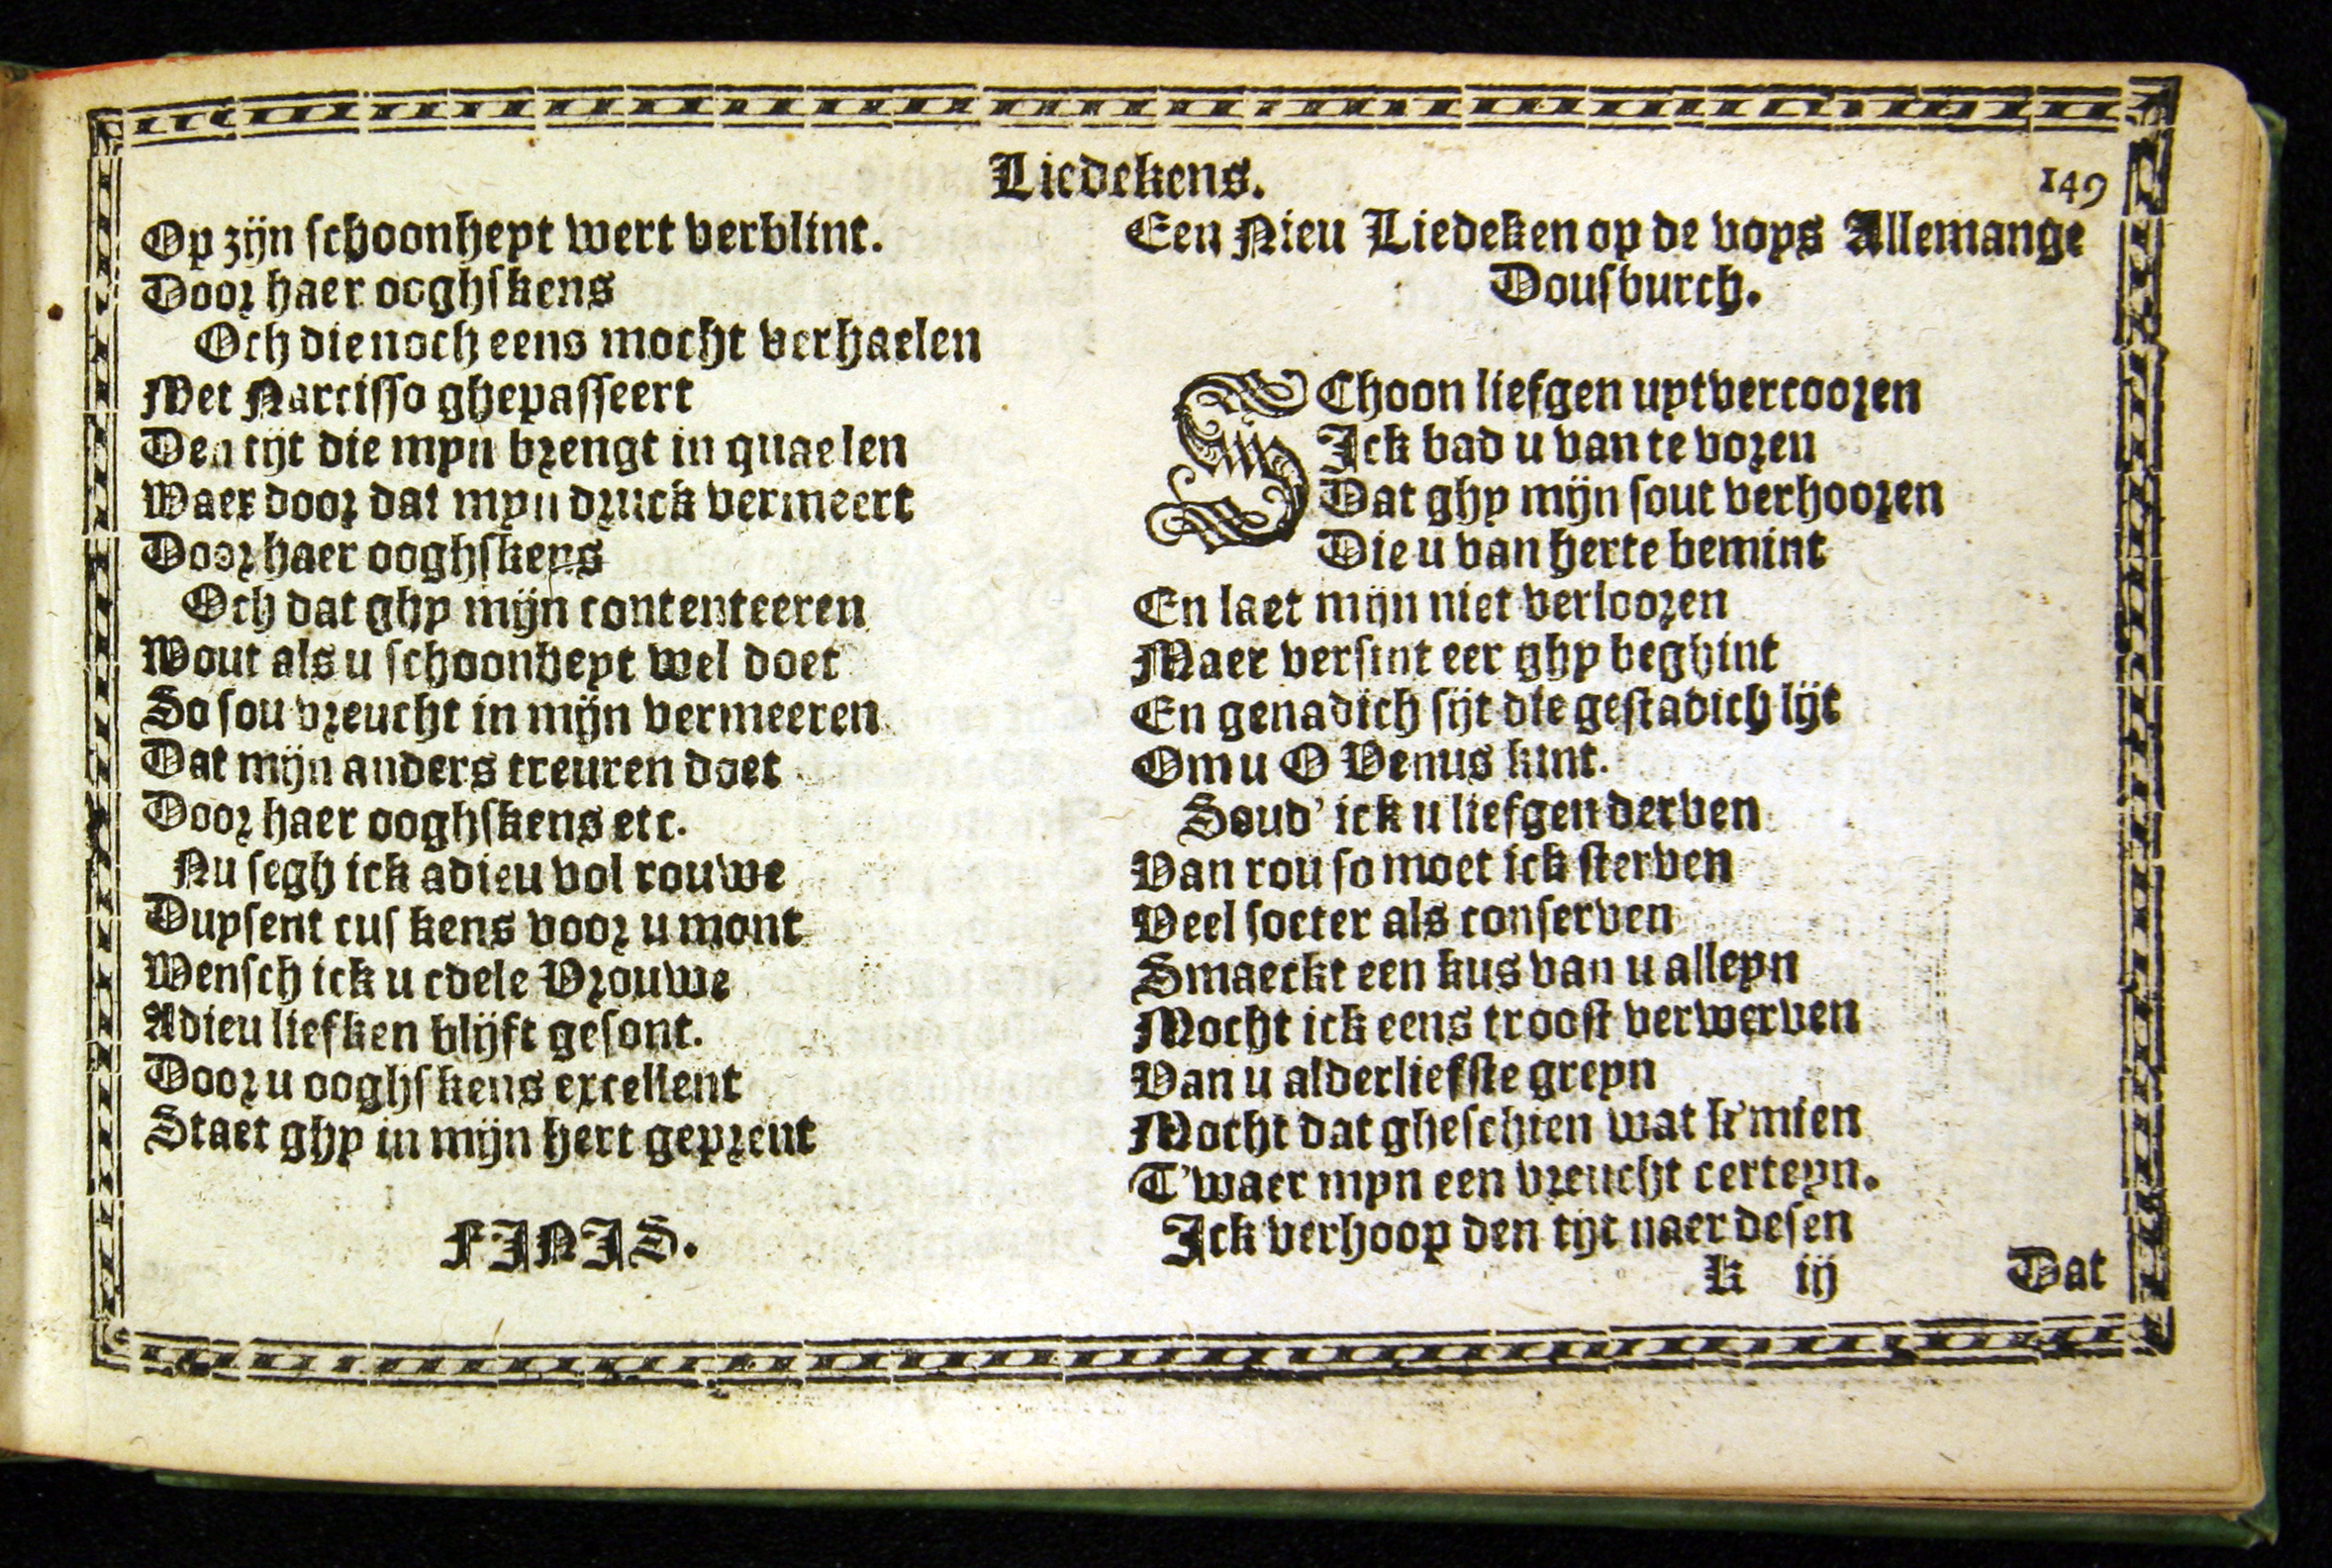 Liedekens.
149
Op zijn schoonheyt wert verblint.
Door haer ooghskens
Och die noch eens mocht verhaelen
Met Narcisso ghepasseert
Den tijt die myn brengt in quaelen
Waer door dat myn druck vermeert
Door haer ooghskens
Och dat ghy mijn contenteeren
Wout als u schoonheyt wel doet
So sou vreucht in mijn vermeeren
Dat mijn anders treuren doet
Door haer ooghskens etc.
Nu segh ick adieu vol rouwe
Duysent cuskens voor u mont
Wensch ick u edele Vrouwe
Adieu liefken blijft gesont.
Door u ooghskens excellent
Staet ghy in mijn hert geprent
FINIS.
Een Nieu Liedeken op de voys Allemange
Dousburch.
SChoon liefgen uytvercooren
Ick bad u van te voren
Dat ghy mijn sout verhooren
Die u van herte bemint
En laet mijn niet verlooren
Maer versint eer ghy beghint
En genadich sijt die gestadich lijt
Om u O Venus kint.
Soud' ick u liefgen derven
Van rou so moet ick sterven
Veel soeter als conserven
Smaeckt een kus van u alleyn
Mocht ick eens troost verwerven
Van u alderliefste greyn
Mocht dat gheschien wat k'mien
T'waer myn een vreucht certeyn.
Ick verhoop den tijt naer desen
k ij Dat